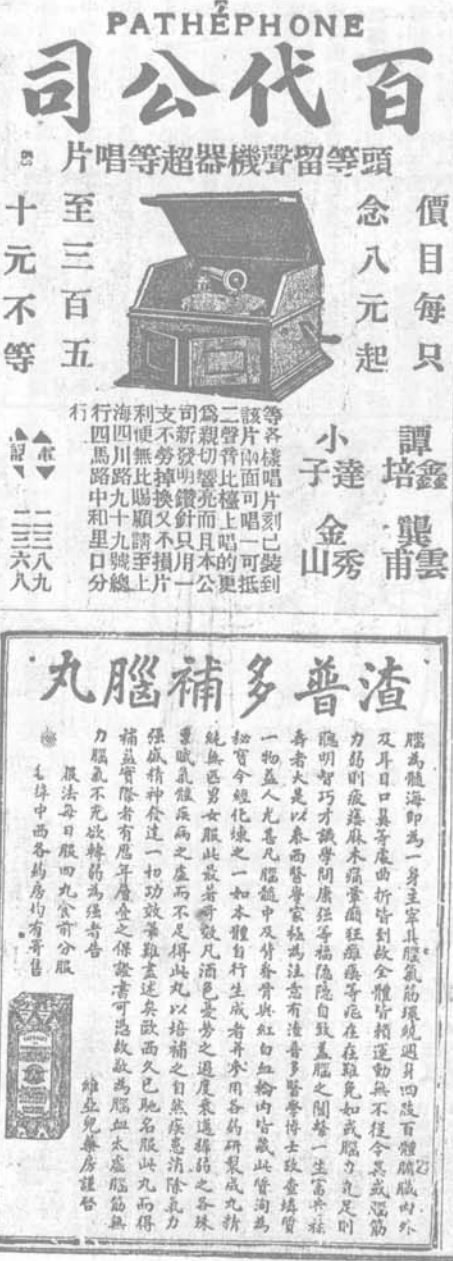 PATHÉPHONE
百代公司
頭等留聲機器超等唱片
價目每只
念八元起
至三百五
十元不等
譚鑫培 龔雲甫
小達子 金秀山
等各樣唱片刻已裝到
該片兩面可唱一可抵
二聲音比檯上唱的更
爲親切響亮而且本公
司新發明鑽針只用一
支不勞掉換又不損片
利便無比賜顧請至上
海四川路九十九號總
行四馬路中和里口分
行
二三八九
二三六八
渣普多補腦丸
腦為髓海即為一身主宰其腦氣筋環繞週身四肢百體臟腑內外
及耳目口鼻等處曲折皆到故全體皆賴運動無不從令為或腦筋
力弱則疲癢麻木痛暈癲狂癱瘓等症在往難免如或腦力充足則
聰明智巧才識學問康強等福隱隱自致蓋腦之關繫一生富貴福
壽者大是以泰西醫學家極為注意有渣普多醫學博士考查燐質
一物益人尤甚凡腦髓中及背脊骨與紅白血輪內皆藏此質洵為
秘寶今經化煉之一如本體自行生成者并參用各藥研製成丸精
純無匹男女服此最著奇效凡酒色憂勞之過度衰邁孱弱之各殊
稟賦氣體疾病之虛而不足得此丸以培補之自然疾患消除氣力
強盛精神發達一切功效筆難盡述矣歐西久已馳名服此丸而得
補益實際者有歷年層叠之保證書可憑故敢為腦血太虛腦筋無
力腦氣不充欲轉弱為強者告
服法每日服四丸食前分服
中西各藥房均有寄售
維亞兒藥房謹啓